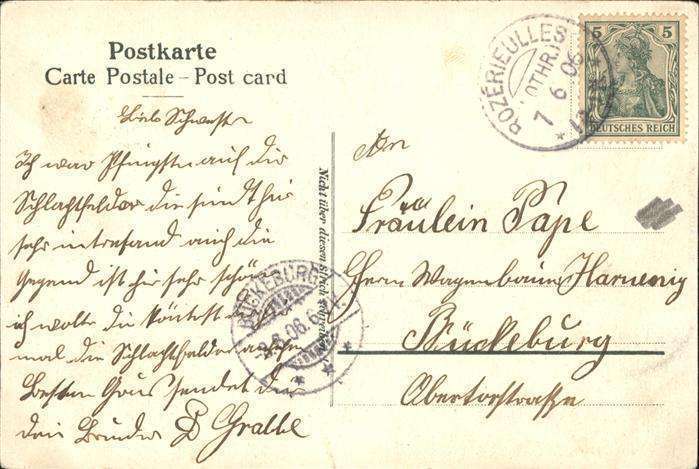 Postkarte
Carte Postale – Post card
Liebe Schwester
Ich war Pfingsten auf die
Schlachtfelder die sind hir
sehr intresand auch die
Gegend ist hir sehr schön
ich wolte du köntest
mal die Schlachtfelder
Besten Grus sendet dir
dein Bruder Gralle
Nicht über diesen Strich schreiben
BÜCKEBURG
8.6.06.6-7V.
ROZÉRIEULLES
(LOTHR.)
7 6 06
5 5
DEUTSCHES REICH
An
Fräulein Pape
Herrn Wagenbauer
Bückeburg
Obertorstraße